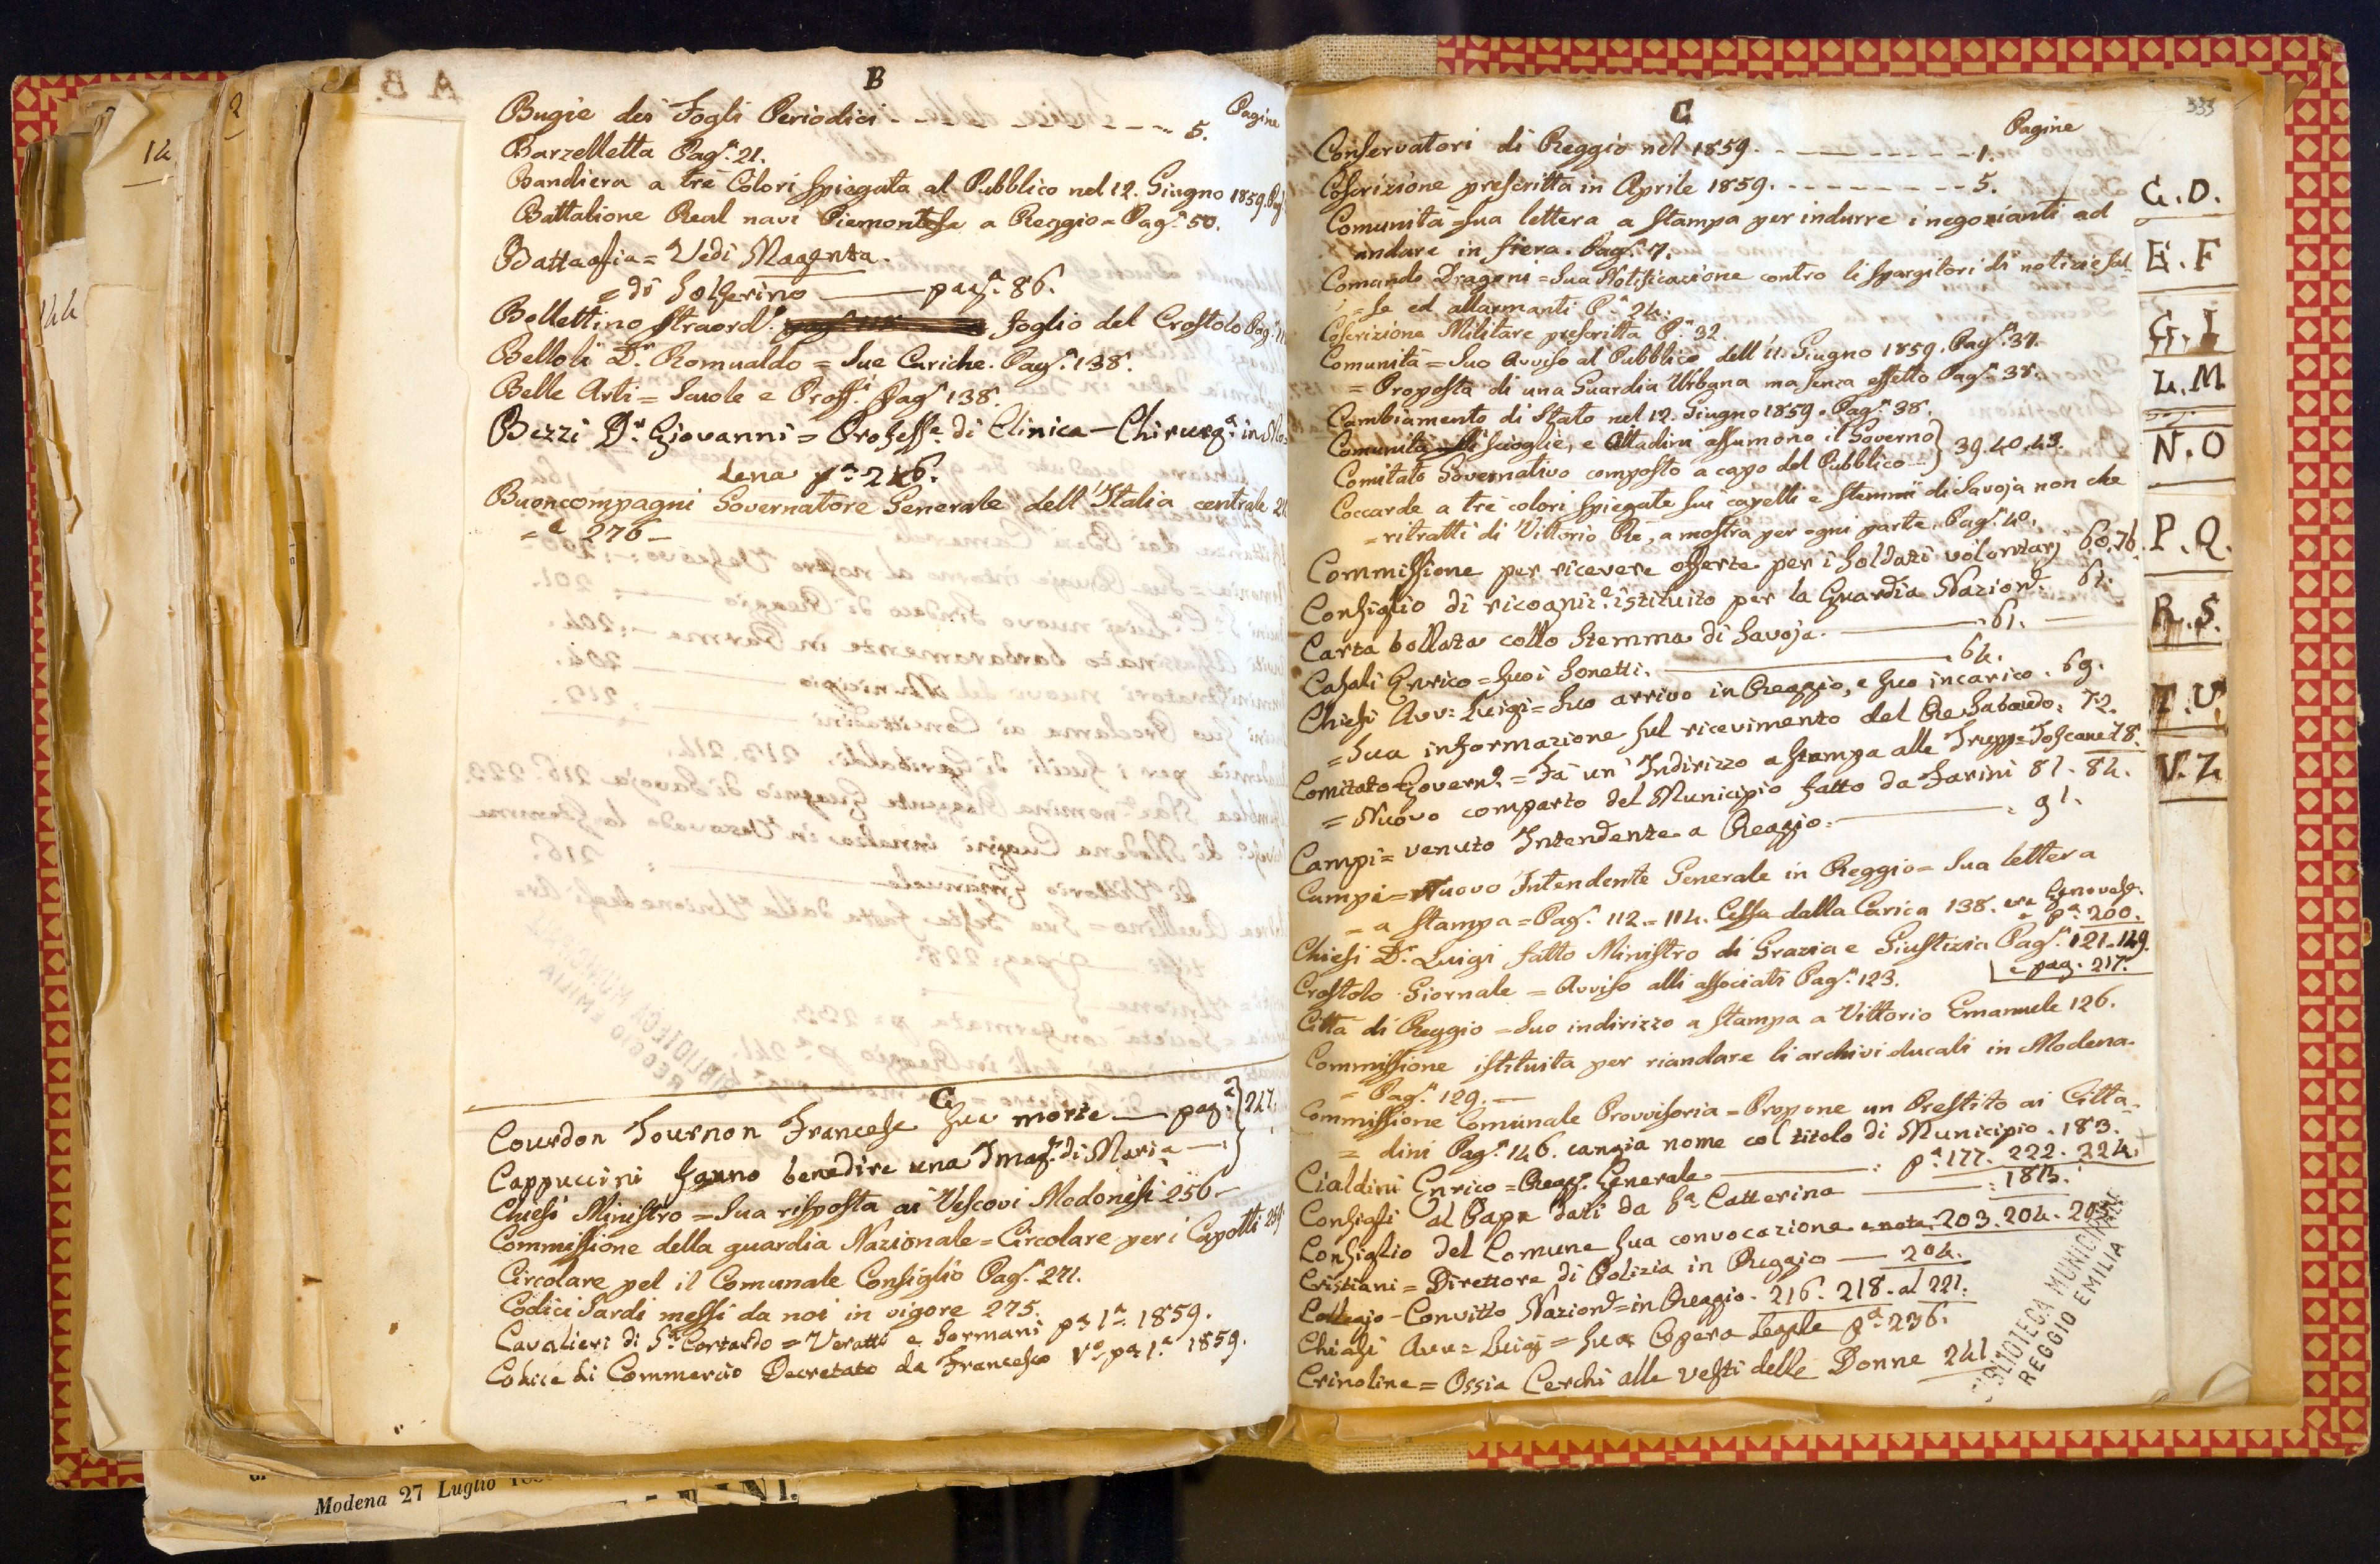 B
Pagine
Bugie dei Fogli Periodici - - - - - - - - - - 5.
Barzelletta Pag.ª 21.
Bandiera a trè Colori spiegata al Pubblico nel 12. Giugno 1859.
Battalione Real navi Piemontese a Reggio = Pag.ª 50.
Battaglia = Vedi Magenta.
= di Solferino ——— pag.ª 86.
Bollettino straord.º foglio del Crostolo Pag.ª
Belloli D.r Romualdo = Sue Cariche. Pag.ª 138.
Belle Arti = Scuole e Proff.i Pag.ª 138.
Bezzi D.r Giovanni = Profess.e di Clinica - Chirurg.ª in Mo=
dena p.ª 246.
Buoncompagni Governatore Generale dell'Italia centrale
= e 276 -
C
Courdon Tournon Francese sua morte — pag.ª } 247.
Cappuccini fanno benedire una Imag.e di Maria — }
Chiesi Ministro = Sua risposta ai Vescovi Modonesi 256 -
Commissione della guardia Nazionale = Circolare per i Capotti
Circolare pel il Comunale Consiglio Pag.ª 271.
Codici Sardi messi da noi in vigore 275.
Cavalieri di S.n Contardo = Veratti e Sormani p.ª 1.ª 1859.
Codice di Commercio Decretato da Francesco V.º p.ª 1.ª 1859.
333
C
Pagine
Conservatori di Reggio nel 1859. - - - - - - - - 1.
Coscrizione prescritta in Aprile 1859. - - - - - - - - 5.
Comunità = sua lettera a stampa per indurre i negozianti ad
andare in fiera. Pag.ª 7.
Comando Dragoni = Sua Notificazione contro li spargitori di notizie fal
= se ed allarmanti P.ª 24.
Coscrizione Militare prescritta P.ª 32.
Comunità = Suo Avviso al Pubblico dell'11. Giugno 1859. Pag.ª 37.
= Proposta di una Guardia Urbana ma senza effetto Pag.ª 38.
Cambiamento di Stato nel 12. Giugno 1859. Pag.ª 38.
Comunità si scioglie, e Cittadini assumono il Governo }
Comitato Governativo composto a capo del Pubblico — } 39. 40. 43.
Coccarde a trè colori spiegate sui capelli e stemmi di Savoja non che
= ritratti di Vittorio Rè, a mostra per ogni parte. Pag.ª 40.
Commissione per ricevere offerte per i Soldati volontarj 60. 76.
Consiglio di ricogniz.e istituito per la Guardia Nazion.e 61.
Carta bollata collo Stemma di Savoja. ——— 61. —
Casali Enrico = suoi Sonetti. ——— 64.
Chiesi Avv: Luigi = Suo arrivo in Reggio, e suo incarico. 69.
= Sua informazione sul ricevimento del Re Sabaudo: 72.
Comitato Govern.º = Fa un' Indirizzo a stampa alle Trupp= Toscane 78.
= Nuovo comparto del Municipio fatto da Farini 81. 84.
Campi = venuto Intendente a Reggio: ——— : 91.
Campi = Nuovo Intendente Generale in Reggio = Sua lettera
= a stampa = Pag.ª 112 = 114. Cessa dalla Carica 138.
p.ª 200.
Chiesi D.r Luigi fatto Ministro di Grazia e Giustizia Pag.ª 121. 149.
e pag. 217.
Crostolo Giornale = Avviso alli associati Pag.ª 123.
Città di Reggio = Suo indirizzo a stampa a Vittorio Emanuele 126.
Commissione istituita per riandare li archivi ducali in Modena.
= Pag.ª 129. —
Commissione Comunale Provvisoria = Propone un Prestito ai Citta=
= dini Pag.ª 146. cangia nome col titolo di Municipio. 183.
Cialdini Enrico = Regg.º Generale ——— : p.ª 177. 222. 224.
Consigli al Papa dati da S.ª Catterina ———
Consiglio del Comune sua convocazione e nota. 203. 204.
Cristiani = Direttore di Polizia in Reggio — 204.
Collegio - Convitto Nazion.e = in Reggio. 216. 218. al 221.
Chiesi Avv = Luigi = sua Opera Legale p.ª 236.
Crinoline = Ossia Cerchi alle vesti delle Donne 241.
BIBLIOTECA MUNICIPALE
REGGIO EMILIA
C.D.
E.F
G.I
L.M
N.O
P.Q.
R.S.
T.U
V.Z
14
2
144
Modena 27 Luglio